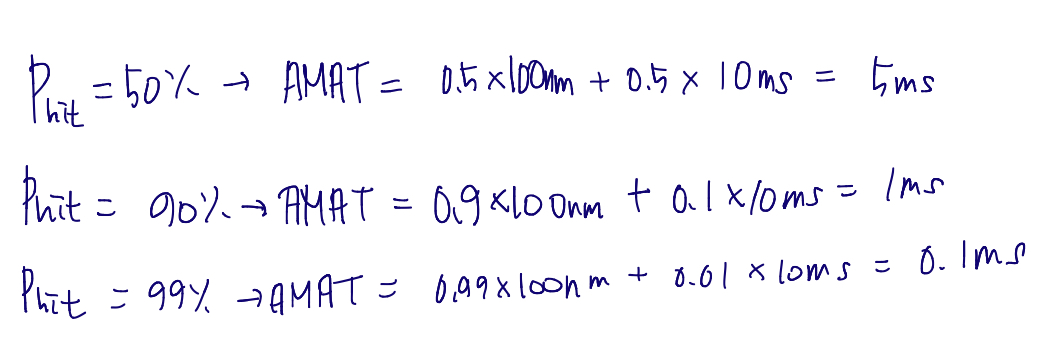 Phit = 50% → AMAT = 0.5 x 100nm + 0.5 x 10ms = 5ms
Phit = 90% → AMAT = 0.9 x 100nm + 0.1 x 10ms = 1ms
Phit = 99% → AMAT = 0.99 x 100nm + 0.01 x 10ms = 0.1ms